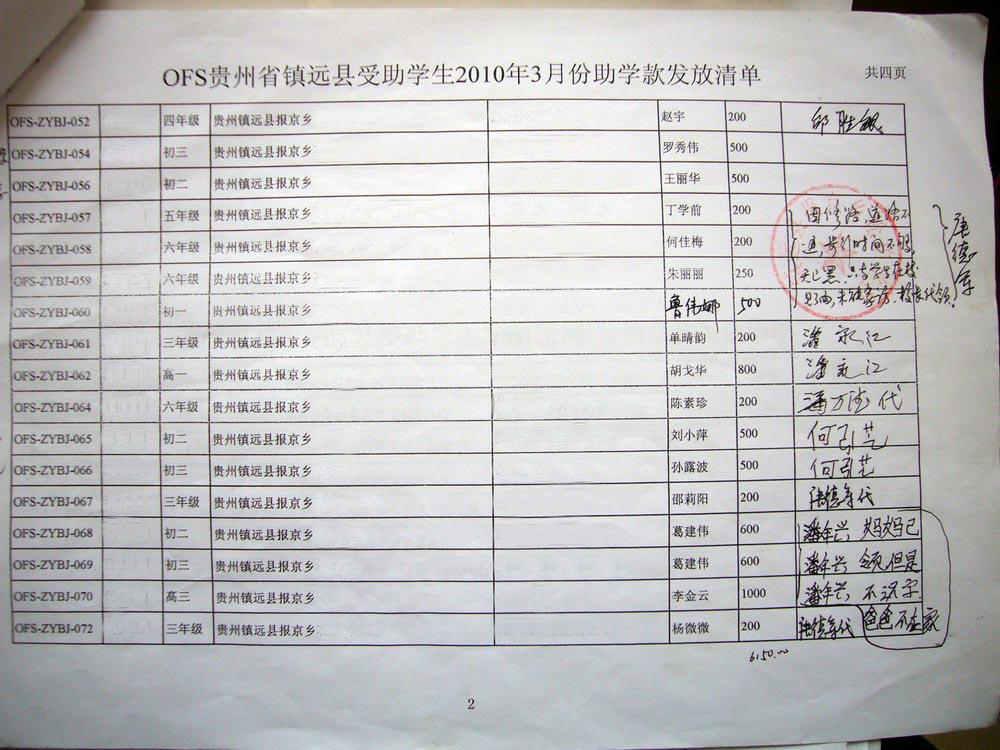 OFS贵州省镇远县受助学生2010年3月份助学款发放清单 共四页
OFS-ZYBJ-052 四年级 贵州镇远县报京乡 赵宇 200
OFS-ZYBJ-054 初三 贵州镇远县报京乡 罗秀伟 500
OFS-ZYBJ-056 初二 贵州镇远县报京乡 王丽华 500
OFS-ZYBJ-057 五年级 贵州镇远县报京乡 丁学前 200 因修路,道路不
OFS-ZYBJ-058 六年级 贵州镇远县报京乡 何佳梅 200 通,步行时间不够,
OFS-ZYBJ-059 六年级 贵州镇远县报京乡 朱丽丽 250 天已黑.
OFS-ZYBJ-060 初一 贵州镇远县报京乡 鲁伟娜 500 校长代领.
OFS-ZYBJ-061 三年级 贵州镇远县报京乡 单晴韵 200 潘永江
OFS-ZYBJ-062 高一 贵州镇远县报京乡 胡戈华 800 潘永江
OFS-ZYBJ-064 六年级 贵州镇远县报京乡 陈素珍 200 代
OFS-ZYBJ-065 初二 贵州镇远县报京乡 刘小萍 500 何引艺
OFS-ZYBJ-066 初三 贵州镇远县报京乡 孙露波 500 何引艺
OFS-ZYBJ-067 三年级 贵州镇远县报京乡 邵莉阳 200 代
OFS-ZYBJ-068 初二 贵州镇远县报京乡 葛建伟 600 潘年兴 妈妈已
OFS-ZYBJ-069 初三 贵州镇远县报京乡 葛建伟 600 潘年兴 领但是
OFS-ZYBJ-070 高三 贵州镇远县报京乡 李金云 1000 潘年兴 不识字
OFS-ZYBJ-072 三年级 贵州镇远县报京乡 杨微微 200 代 爸爸不在家
6150.00
2